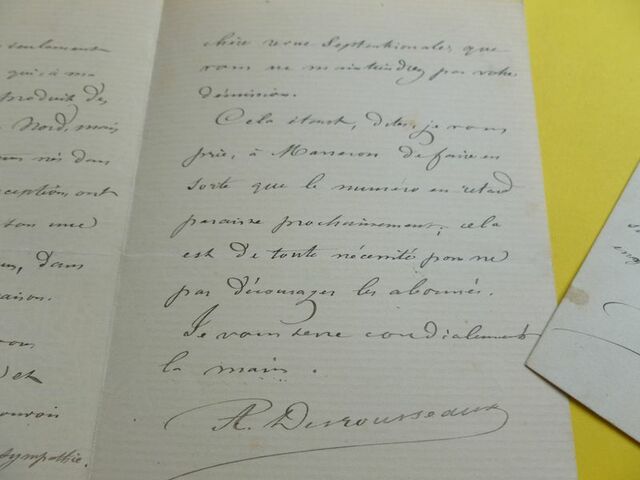 seulement
qui, à ma
produit des
Nord, mais
nés dans
ont
une
dans
vous
et
sympathie.
chère revue Septentrionale, que
vous ne maintiendrez pas votre
démission.
Cela étant, dites, je vous
prie, à Masseron de faire en
sorte que le numéro en retard
paraisse prochainement; cela
est de toute nécessité pour ne
pas décourager les abonnés.
Je vous serre cordialement
la main.
A. Desrousseaux